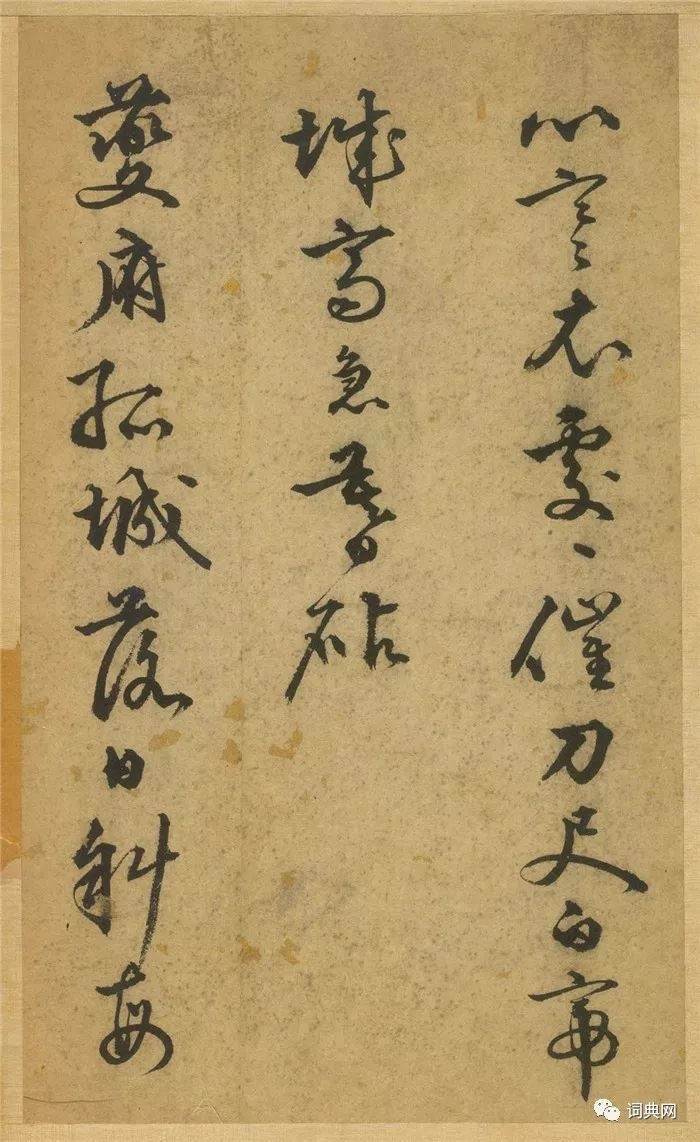 心寒衣處々催刀尺白帝
城高急暮砧
夔府孤城落日斜每
词典网